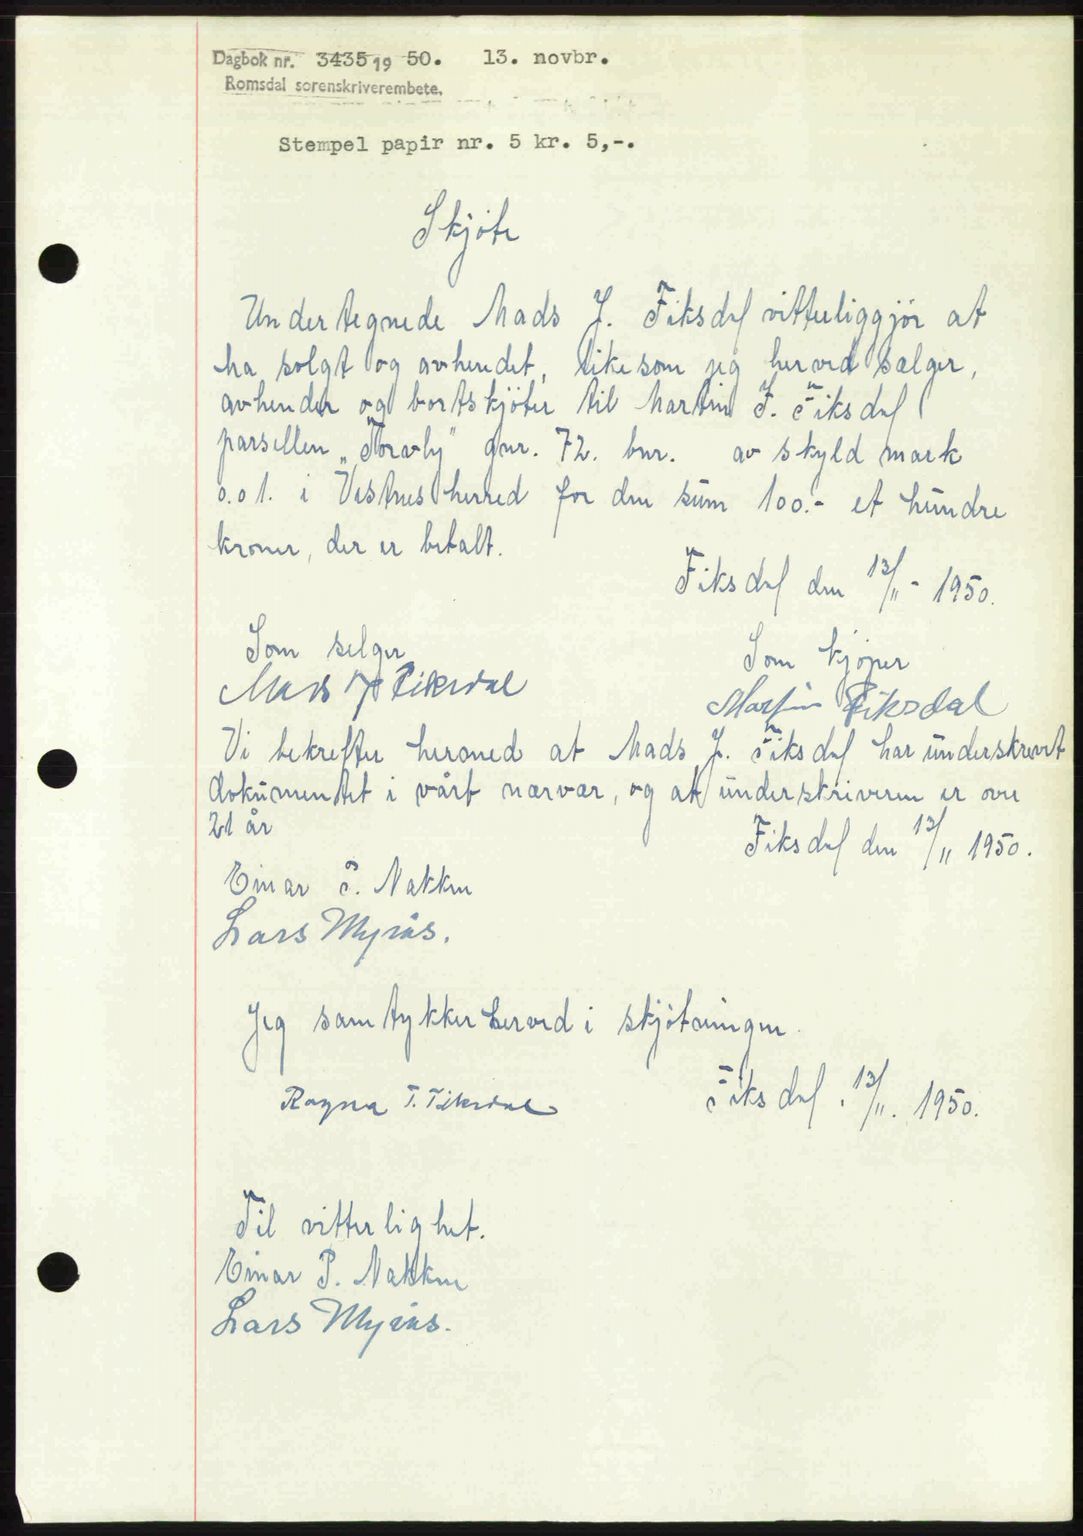 Dagbok nr. 3435 19 50. 13. novbr.
Romsdal sorenskriverembete.
Stempel papir nr. 5 kr. 5,-.
Skjöte
Undertegnede Mads J. Fiksdal vitterliggjör at
ha solgt og avhendet, likesom jeg herved sælger,
avhender og bortskjöter til Martin J. Fiksdal
parsellen „Torvly" gnr. 72. bnr. av skyld mark
0.01. i Vestnes herred for den sum 100.- et hundre
kroner, der er betalt.
Fiksdal den 13/11 - 1950.
Som selger Som kjöper
Mads J Fiksdal Martin Fiksdal
Vi bekrefter hermed at Mads J. Fiksdal har underskrevet
dokumentet i vårt nærvær, og at underskriveren er over
21 år
Fiksdal den 13/11 1950.
Einar P. Nakken
Lars Myrås.
Jeg samtykker herved i skjötningen.
Ragna T. Fiksdal Fiksdal. 13/11. 1950.
Til vitterlighet.
Einar P. Nakken
Lars Myrås.